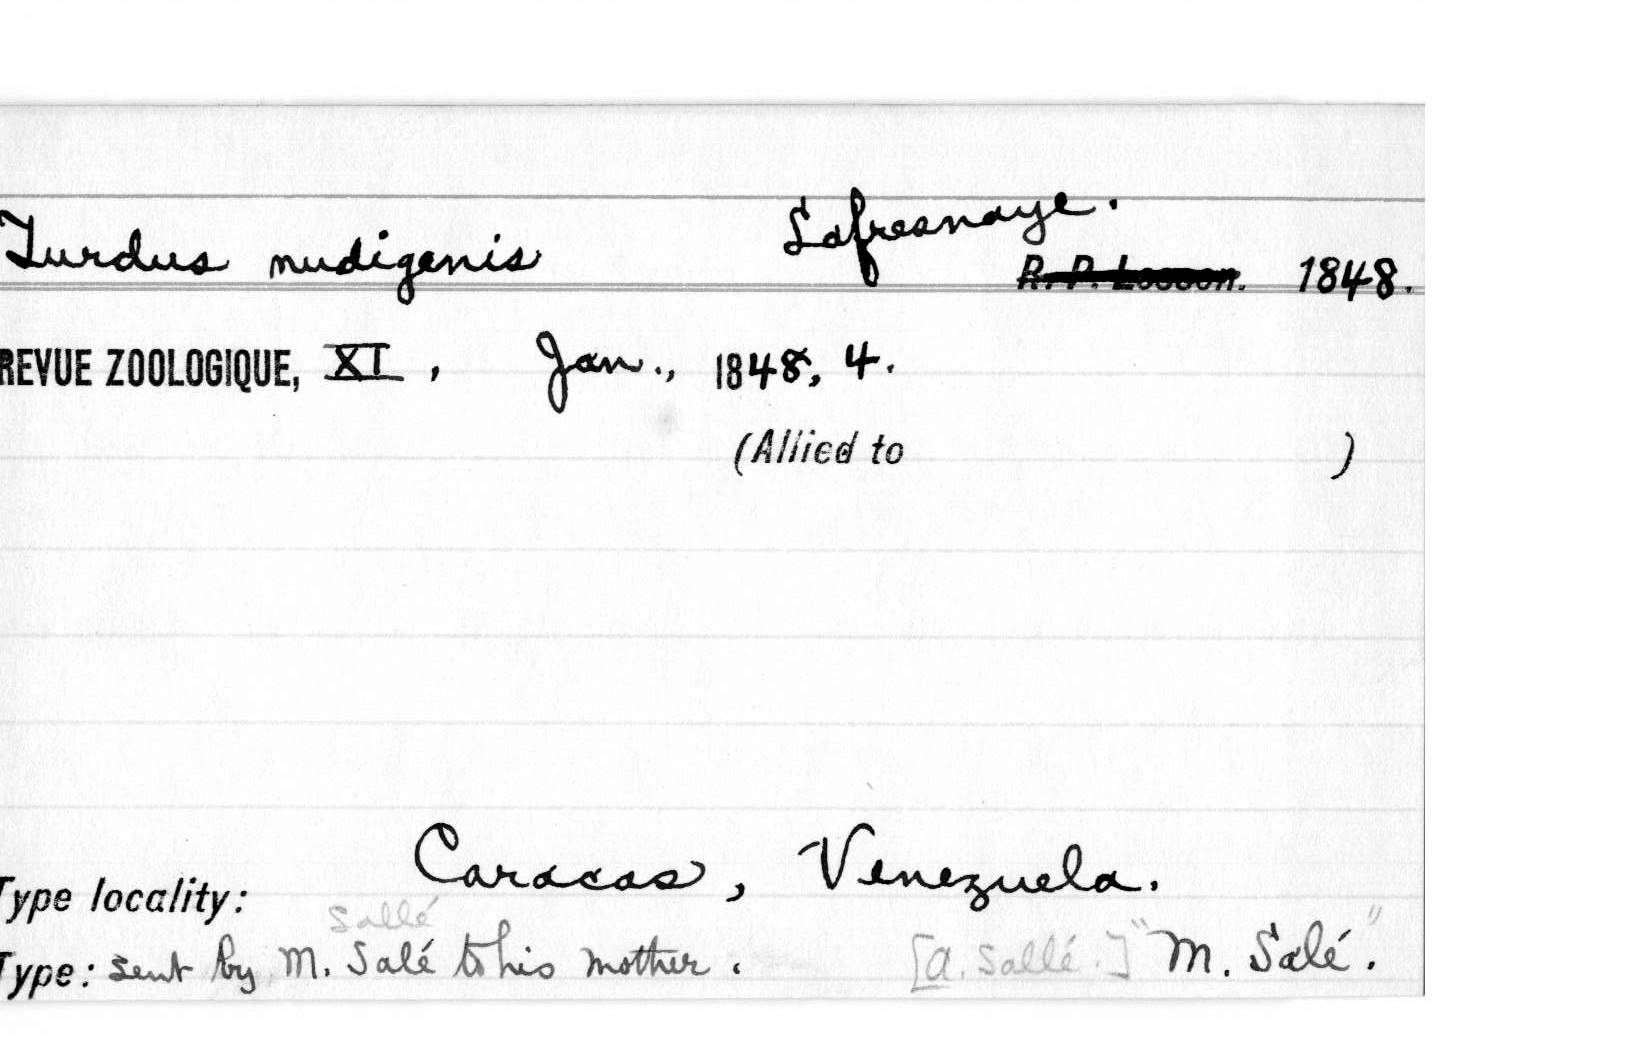 Turdus nudigenis Lafresnaye.
R. P. Lesson. 1848.
REVUE ZOOLOGIQUE, XI, Jan., 1848, 4.
(Allied to )
Type locality: Caracas, Venezuela.
Sallé
Type: sent by M. Salé to his mother. [A. Sallé.] "M. Salé."